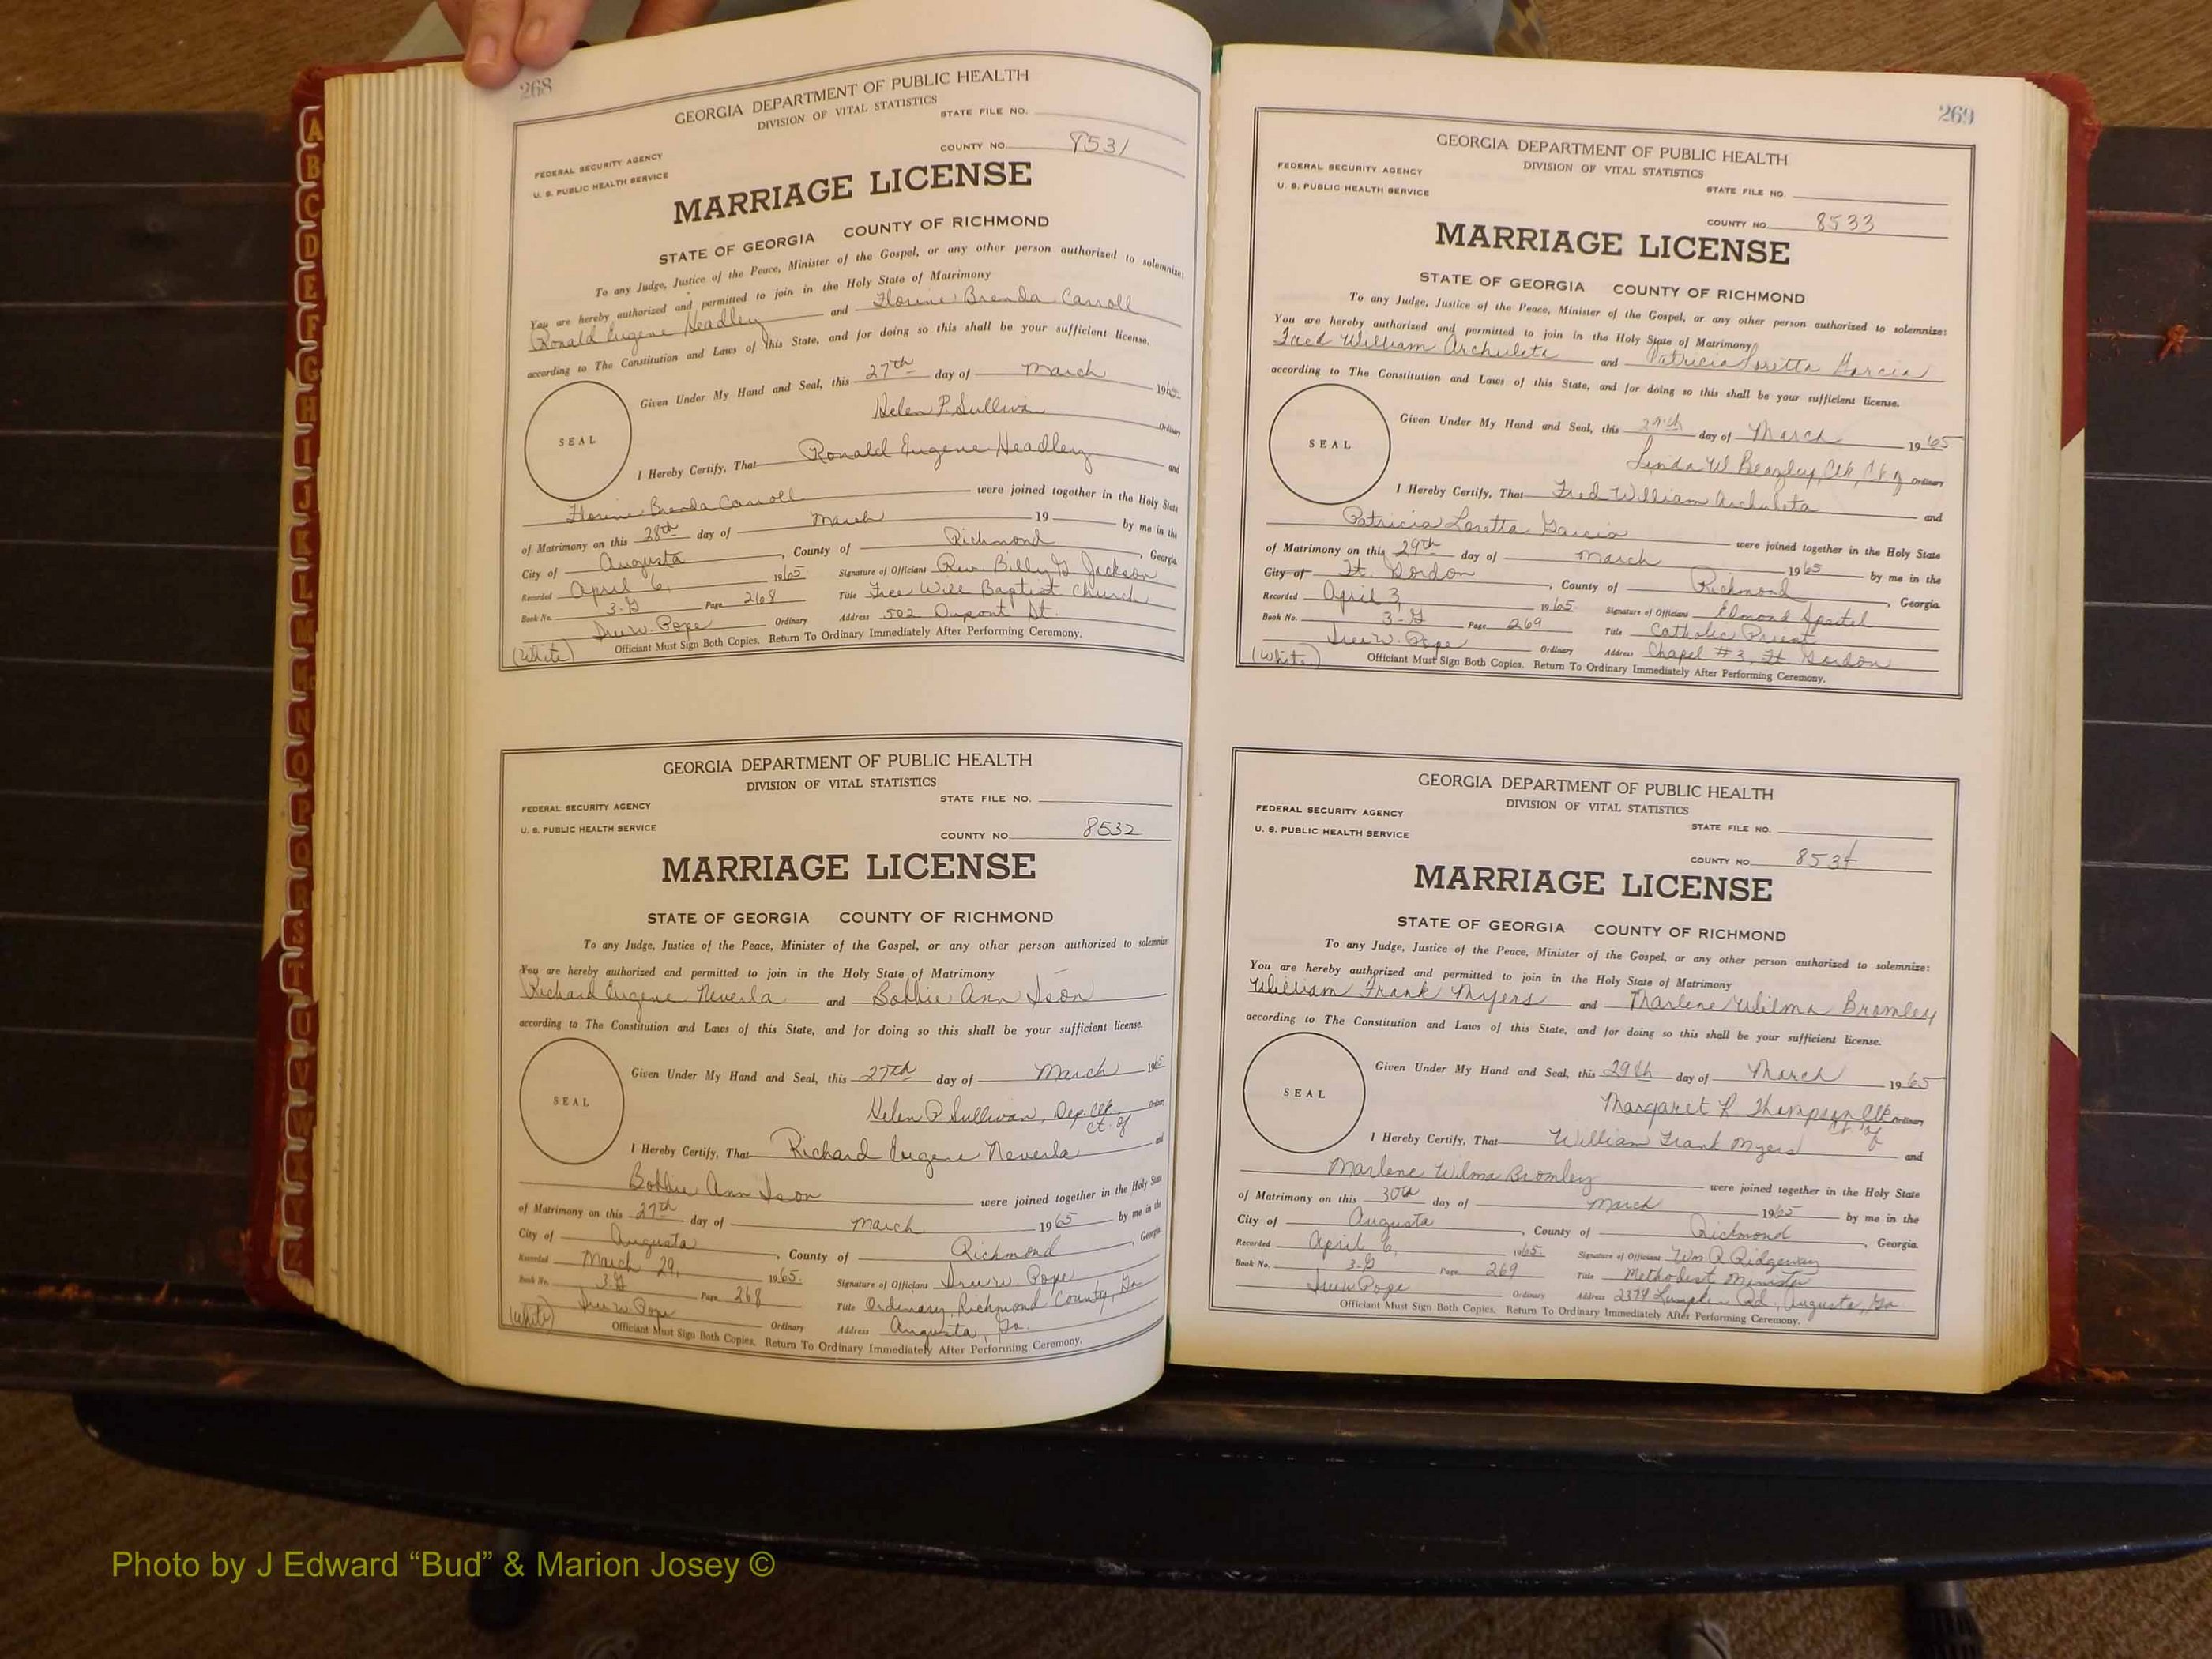 268
GEORGIA DEPARTMENT OF PUBLIC HEALTH
DIVISION OF VITAL STATISTICS
STATE FILE NO.
FEDERAL SECURITY AGENCY
U. S. PUBLIC HEALTH SERVICE
COUNTY NO. 8531
MARRIAGE LICENSE
STATE OF GEORGIA COUNTY OF RICHMOND
To any Judge, Justice of the Peace, Minister of the Gospel, or any other person authorized to solemnize:
You are hereby authorized and permitted to join in the Holy State of Matrimony
Ronald Eugene Headley and Florine Brenda Carroll
according to The Constitution and Laws of this State, and for doing so this shall be your sufficient license.
Given Under My Hand and Seal, this 27th day of March 1965
Helen P. Sulliva
Ordinary
SEAL
I Hereby Certify, That Ronald Eugene Headley and
Florine Brenda Carroll were joined together in the Holy State
of Matrimony on this 28th day of March 19 by me in the
City of Augusta, County of Richmond, Georgia
Recorded April 6, 1965 Signature of Officiant Rev. Billy G Jackson
Book No. 3-G Page 268 Title Free Will Baptist Church
Iree W. Pope Ordinary Address 502 Dupont St.
(White) Officiant Must Sign Both Copies. Return To Ordinary Immediately After Performing Ceremony.
GEORGIA DEPARTMENT OF PUBLIC HEALTH
DIVISION OF VITAL STATISTICS
STATE FILE NO.
FEDERAL SECURITY AGENCY
U. S. PUBLIC HEALTH SERVICE
COUNTY NO. 8532
MARRIAGE LICENSE
STATE OF GEORGIA COUNTY OF RICHMOND
To any Judge, Justice of the Peace, Minister of the Gospel, or any other person authorized to solemnize:
You are hereby authorized and permitted to join in the Holy State of Matrimony
Richard Eugene Neverla and Bobbie Ann Ison
according to The Constitution and Laws of this State, and for doing so this shall be your sufficient license.
Given Under My Hand and Seal, this 27th day of March 1965
Helen P Sullivan, Dep. Clk. Ordinary
Ct. of
SEAL
I Hereby Certify, That Richard Eugene Neverla and
Bobbie Ann Ison were joined together in the Holy State
of Matrimony on this 27th day of March 1965 by me in the
City of Augusta, County of Richmond, Georgia
Recorded March 29, 1965. Signature of Officiant Iree W. Pope
Book No. 3-G Page 268 Title Ordinary, Richmond County, Ga
Iree W. Pope Ordinary Address Augusta, Ga.
(White) Officiant Must Sign Both Copies. Return To Ordinary Immediately After Performing Ceremony.
269
GEORGIA DEPARTMENT OF PUBLIC HEALTH
DIVISION OF VITAL STATISTICS
FEDERAL SECURITY AGENCY
U. S. PUBLIC HEALTH SERVICE
STATE FILE NO.
COUNTY NO. 8533
MARRIAGE LICENSE
STATE OF GEORGIA COUNTY OF RICHMOND
To any Judge, Justice of the Peace, Minister of the Gospel, or any other person authorized to solemnize:
You are hereby authorized and permitted to join in the Holy State of Matrimony
Fred William Archuleta and Patricia Loretta Garcia
according to The Constitution and Laws of this State, and for doing so this shall be your sufficient license.
Given Under My Hand and Seal, this 29th day of March 1965
Linda W Beazley, Clk, Ct of Ordinary
SEAL
I Hereby Certify, That Fred William Archuleta and
Patricia Loretta Garcia were joined together in the Holy State
of Matrimony on this 29th day of March 1965 by me in the
City of Ft. Gordon, County of Richmond, Georgia
Recorded April 3 1965. Signature of Officiant Elmond
Book No. 3-G Page 269 Title Catholic Priest
Iree W. Pope Ordinary Address Chapel #3, Ft Gordon
(White) Officiant Must Sign Both Copies. Return To Ordinary Immediately After Performing Ceremony.
GEORGIA DEPARTMENT OF PUBLIC HEALTH
DIVISION OF VITAL STATISTICS
FEDERAL SECURITY AGENCY
U. S. PUBLIC HEALTH SERVICE
STATE FILE NO.
COUNTY NO. 8534
MARRIAGE LICENSE
STATE OF GEORGIA COUNTY OF RICHMOND
To any Judge, Justice of the Peace, Minister of the Gospel, or any other person authorized to solemnize:
You are hereby authorized and permitted to join in the Holy State of Matrimony
William Frank Myers and Marlene Wilma Bromley
according to The Constitution and Laws of this State, and for doing so this shall be your sufficient license.
Given Under My Hand and Seal, this 29th day of March 1965
Margaret R Thompson Clk Ordinary
Ct. of
SEAL
I Hereby Certify, That William Frank Myers and
Marlene Wilma Bromley were joined together in the Holy State
of Matrimony on this 30th day of March 1965 by me in the
City of Augusta, County of Richmond, Georgia.
Recorded April 6, 1965. Signature of Officiant Wm R Ridgeway
Book No. 3-G Page 269 Title Methodist Minister
Iree W Pope Ordinary Address 2374 Lumpkin Rd, Augusta, Ga.
Officiant Must Sign Both Copies. Return To Ordinary Immediately After Performing Ceremony.
A
B
C
D
E
F
G
H
I
J
K
L
M
Mc
N
O
P
Q
R
S
T
U
V
W
X
Y
Z
Photo by J Edward “Bud” & Marion Josey ©